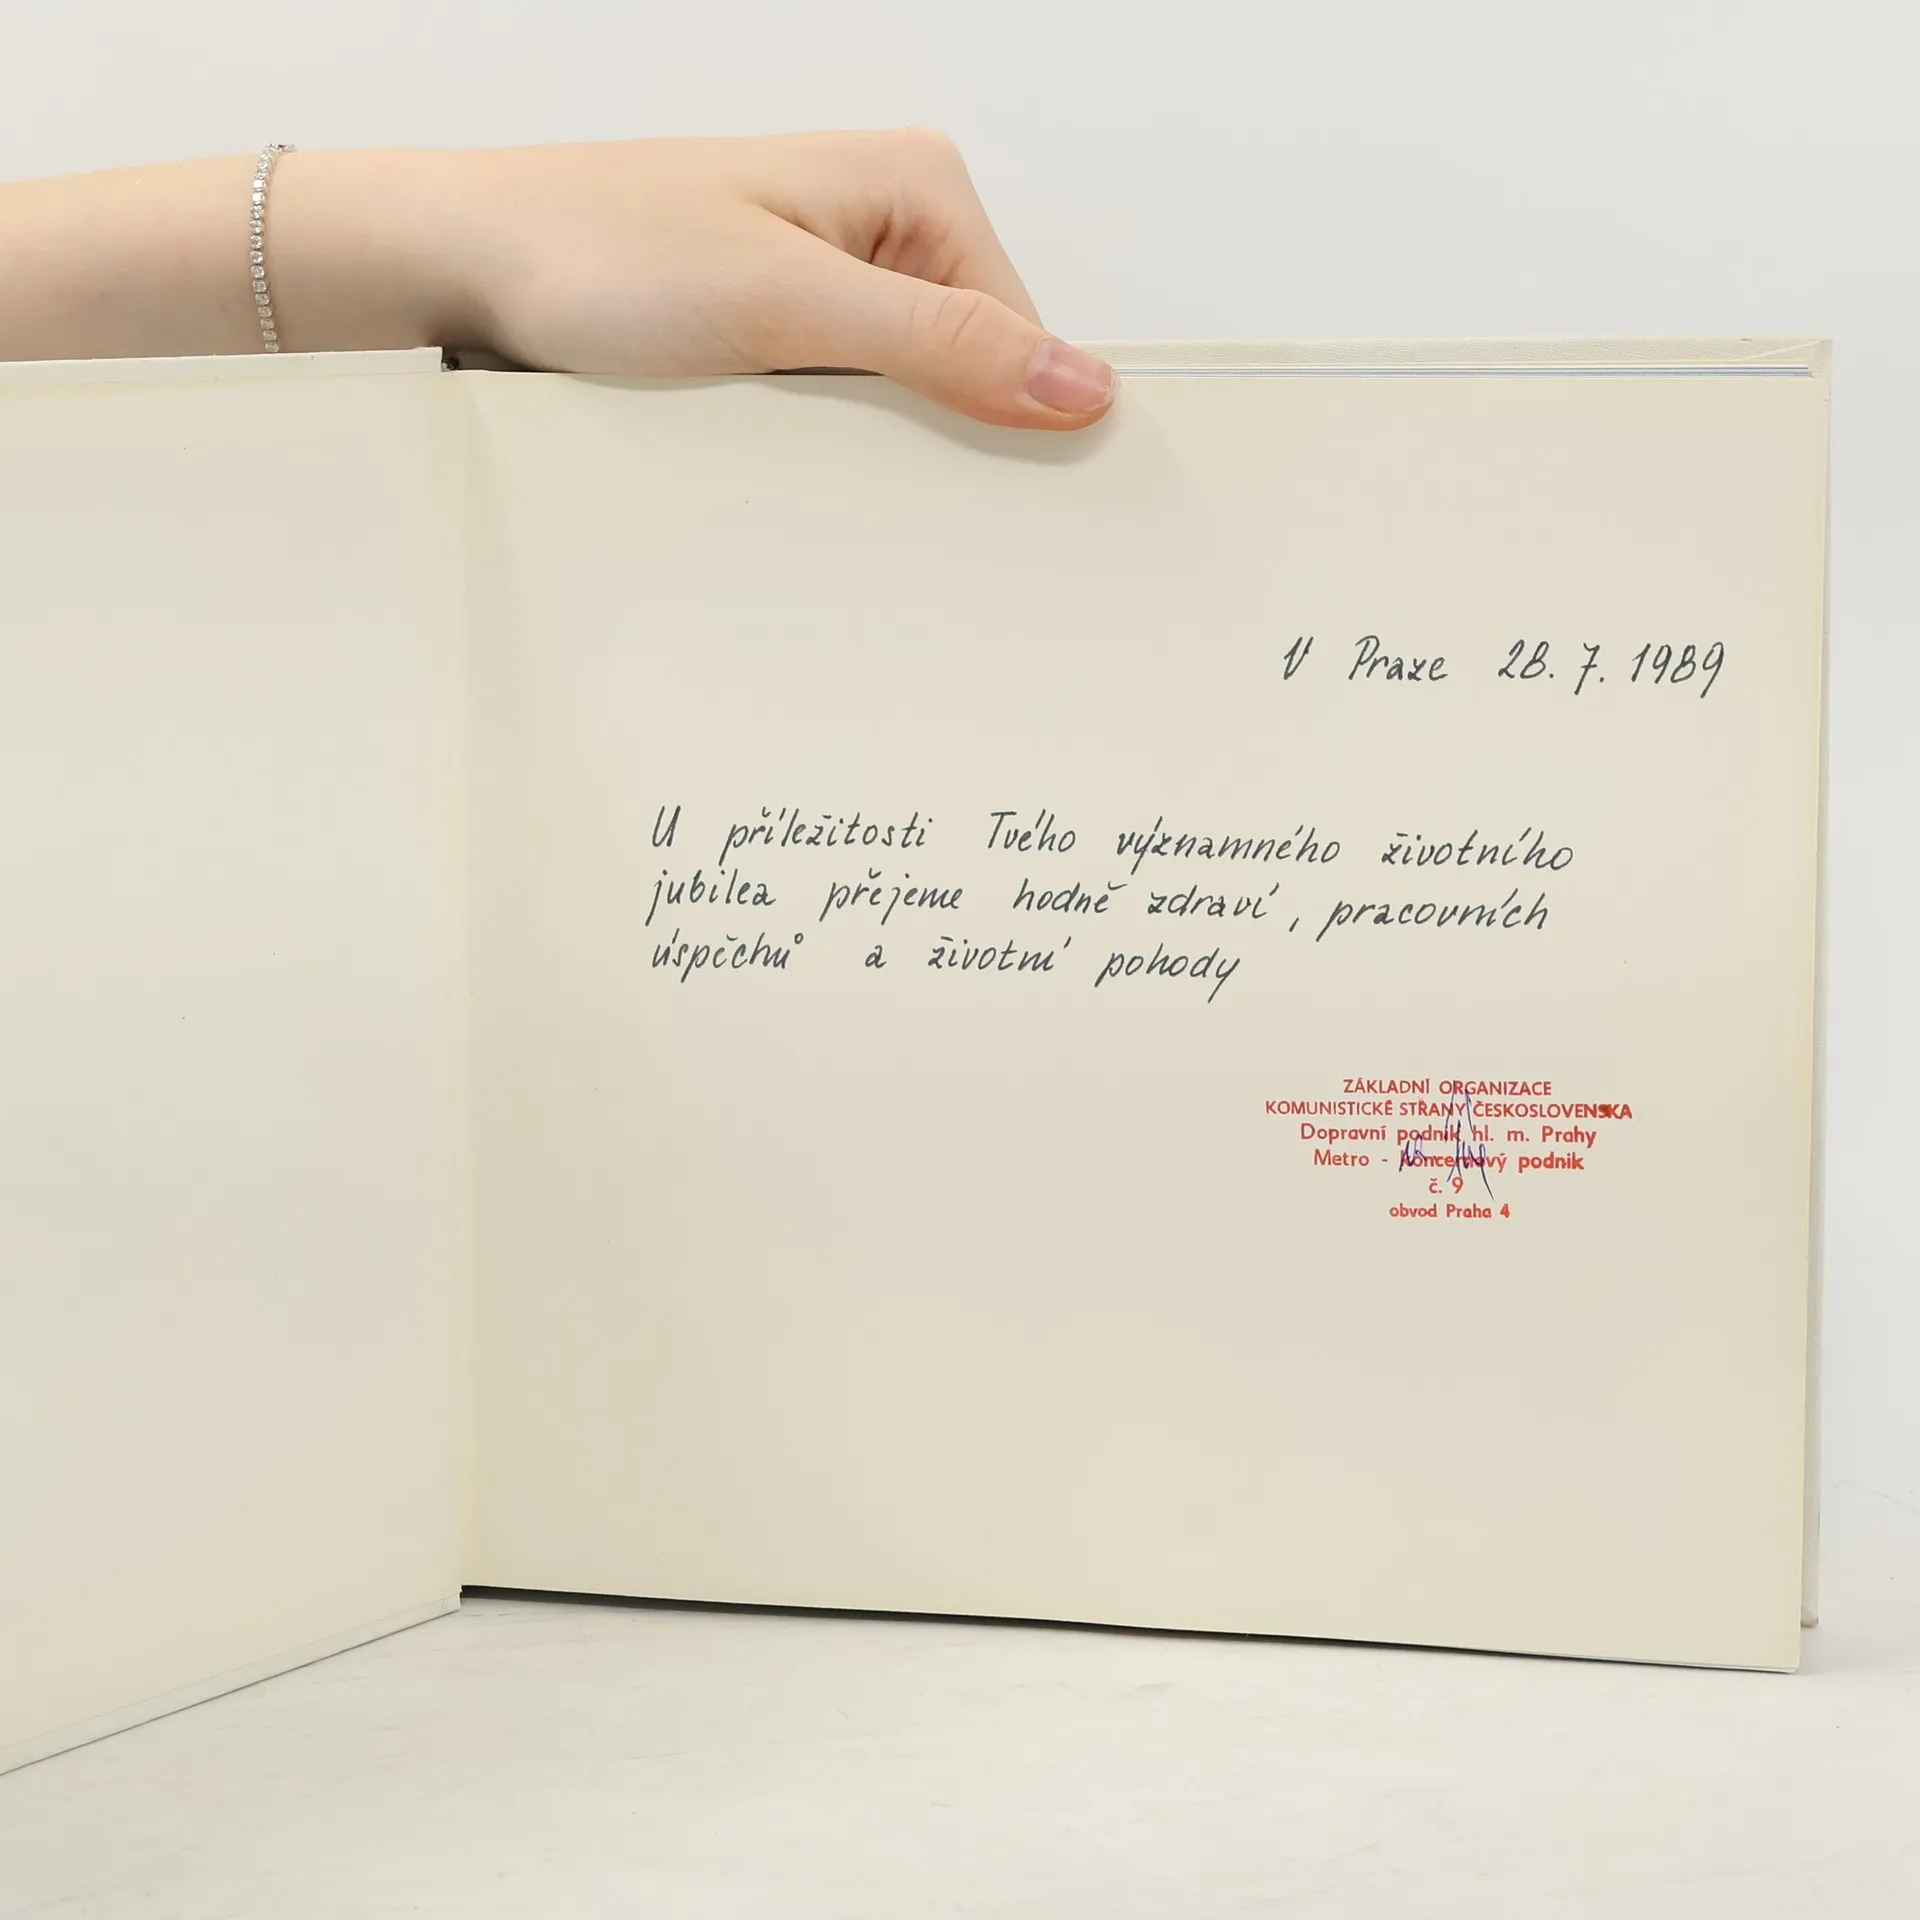 V Praze 28. 7. 1989
U příležitosti Tvého významného životního
jubilea přejeme hodně zdraví, pracovních
úspěchů a životní pohody
ZÁKLADNÍ ORGANIZACE
KOMUNISTICKÉ STRANY ČESKOSLOVENSKA
Dopravní podnik hl. m. Prahy
Metro - koncernový podnik
č. 9
obvod Praha 4